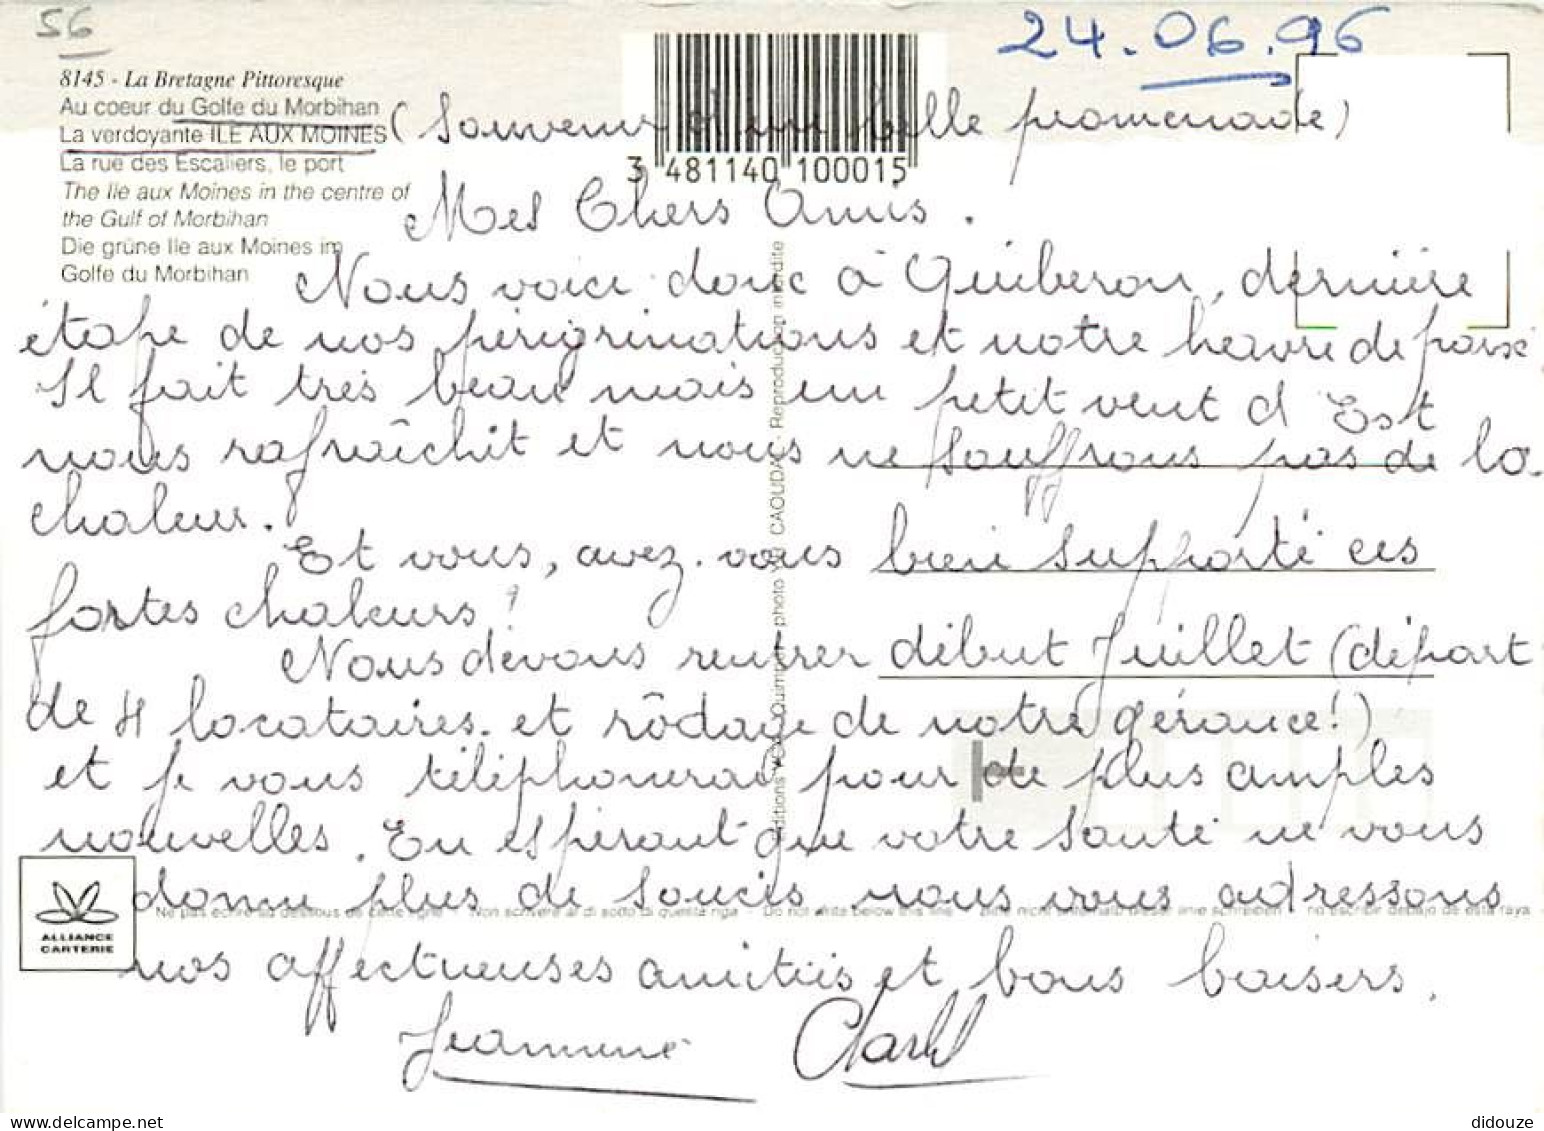 56
24.06.96
8145 - La Bretagne Pittoresque
Au coeur du Golfe du Morbihan
La verdoyante ILE AUX MOINES
(Souvenir d'une belle promenade)
La rue des Escaliers, le port
The Ile aux Moines in the centre of
the Gulf of Morbihan
Die grüne Ile aux Moines im
Golfe du Morbihan
3 481140 100015
Mes Chers Amis.
Nous voici donc à Quiberon, dernière
étape de nos pérégrinations et notre heavre de paix
Il fait très beau mais un petit vent d'Est
nous rafraîchit et nous ne souffrons pas de la
chaleur.
Et vous, avez-vous bien supporté ces
fortes chaleurs ?
Nous devons rentrer début Juillet (départ
de 4 locataires et rôdage de notre gérance!)
et je vous téléphonerai pour de plus amples
nouvelles. En espérant que votre santé ne vous
donne plus de soucis nous vous adressons
nos affectueuses amitiés et bons baisers.
Jeannine Charles
ALLIANCE
CARTERIE
Ne pas écrire au dessous de cette ligne - Non scrivere al di sotto di questa riga - Do not write below this line - Bitte nicht unterhalb dieser linie schreiben - no escribir debajo de esta raya
Editions Quimper - photo CAOUDAL - Reproduction interdite
www.delcampe.net
didouze